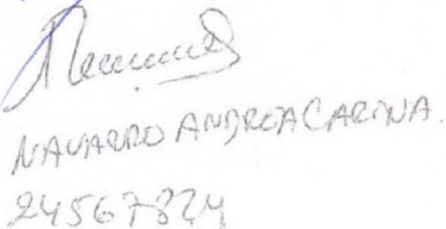 NAVARRO ANDREA CARINA.
24567824